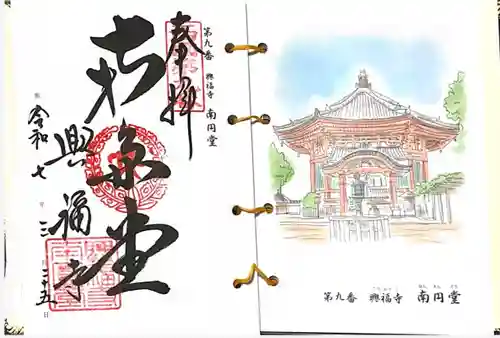 第九番 興福寺 南円堂
奉拝
堂
興福寺
令和七年三月二十五日
第九番 興福寺 南円堂